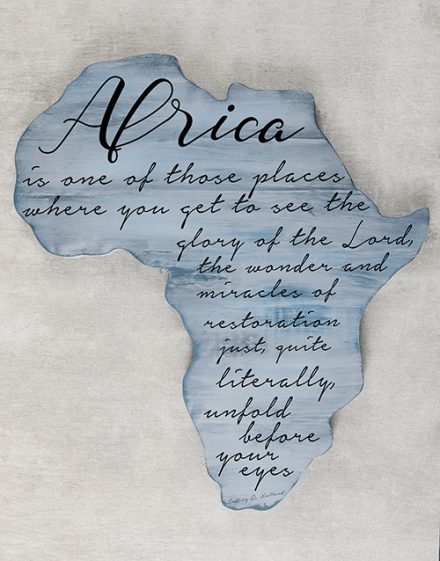 Africa
is one of those places
where you get to see the
glory of the Lord,
the wonder and
miracles of
restoration
just, quite
literally,
unfold
before
your
eyes
Jeffrey D. Holland